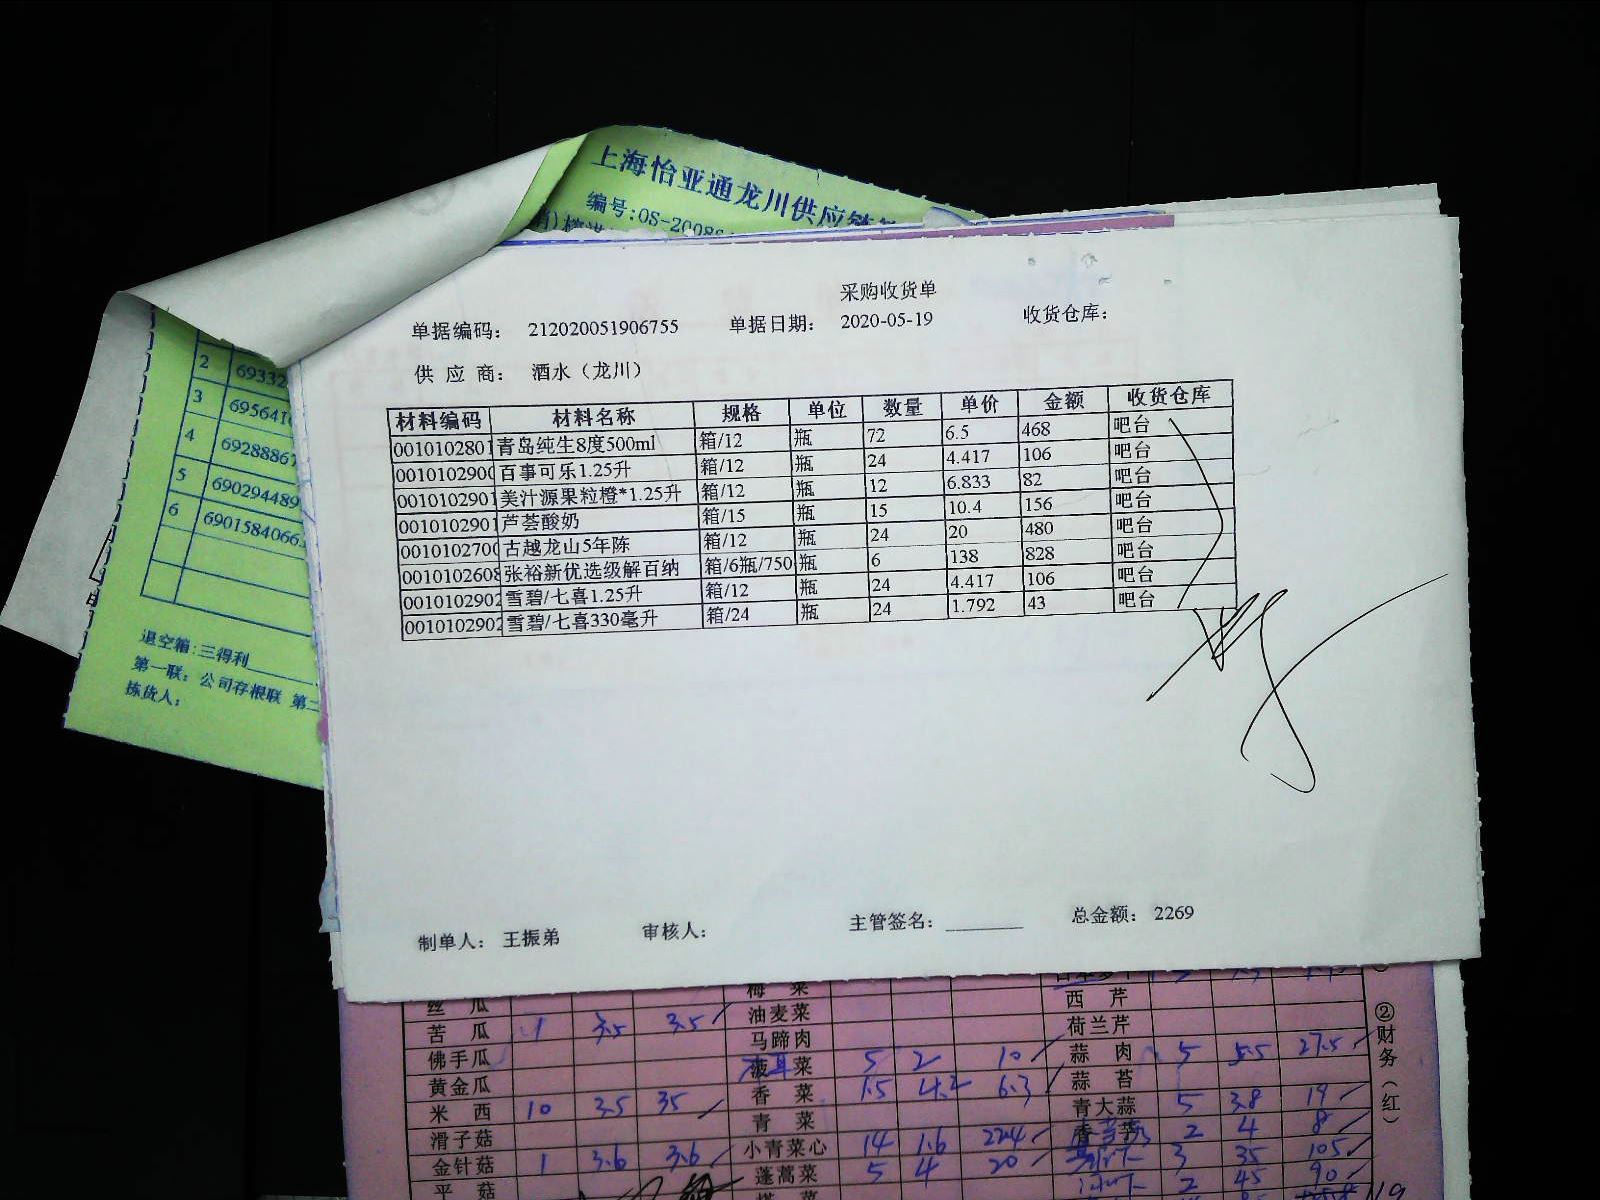 上海怡亚通龙川供应链
编号:OS-2008
2 6933
3 695641
4 6928886
5 690294489
6 690158406
退空箱:三得利
第一联: 公司存根联 第二
拣货人:
采购收货单
单据编码: 212020051906755 单据日期: 2020-05-19 收货仓库:
供 应 商: 酒水（龙川）
材料编码 材料名称 规格 单位 数量 单价 金额 收货仓库
0010102801 青岛纯生8度500ml 箱/12 瓶 72 6.5 468 吧台
001010290 百事可乐1.25升 箱/12 瓶 24 4.417 106 吧台
0010102901 美汁源果粒橙*1.25升 箱/12 瓶 12 6.833 82 吧台
0010102901 芦荟酸奶 箱/15 瓶 15 10.4 156 吧台
001010270 古越龙山5年陈 箱/12 瓶 24 20 480 吧台
001010260 张裕新优选级解百纳 箱/6瓶/750 瓶 6 138 828 吧台
0010102902 雪碧/七喜1.25升 箱/12 瓶 24 4.417 106 吧台
0010102902 雪碧/七喜330毫升 箱/24 瓶 24 1.792 43 吧台
制单人: 王振弟 审核人: 主管签名: 总金额: 2269
丝 瓜 梅 菜 西 芹
苦 瓜 1 3.5 3.5 油麦菜 荷兰芹
佛手瓜 马蹄肉 蒜 肉 5 5.5 27.5
黄金瓜 菜 5 2 10 蒜 苔
米 西 10 3.5 35 香 菜 1.5 4.2 6.3 青大蒜 5 3.8 19
滑子菇 青 菜 2 4 8
金针菇 1 3.6 3.6 小青菜心 14 1.6 22.4 3 35 105
平 菇 蓬蒿菜 5 4 20 2 45 90
②财务（红）